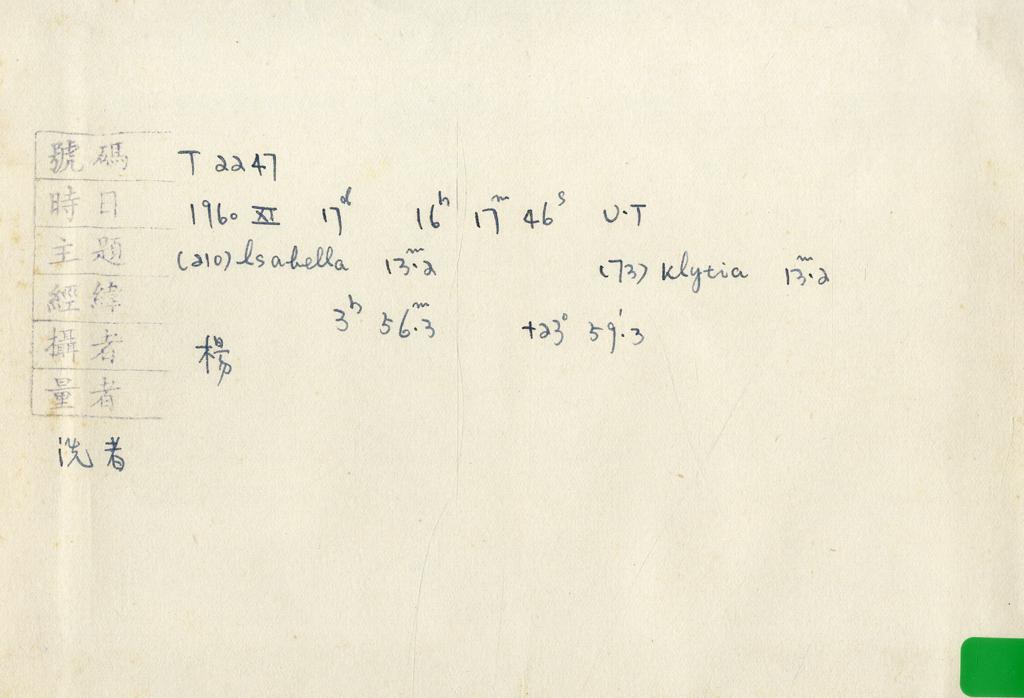 號碼 T 2247
時日 1960 XI 17ᵈ 16ʰ 17ᵐ 46ˢ U.T
主題 (210) Isabella 13ᵐ.2 (73) Klytia 13ᵐ.2
經緯 3ʰ 56ᵐ.3 +23° 59'.3
攝者 楊
量者
洗者